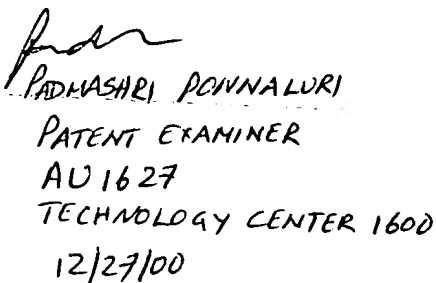 PADMASHRI PONNALURI
PATENT EXAMINER
AU 1627
TECHNOLOGY CENTER 1600
12/27/00